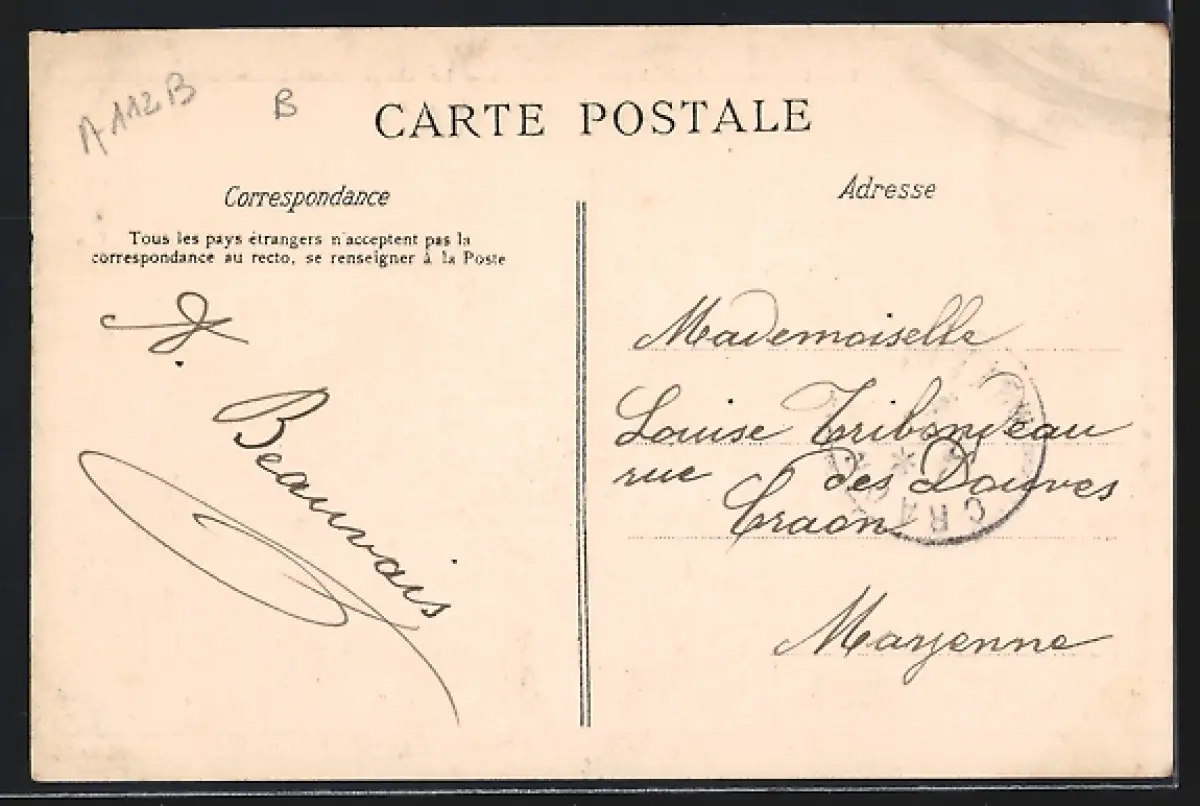 A112B B
CARTE POSTALE
Correspondance
Tous les pays étrangers n'acceptent pas la
correspondance au recto, se renseigner à la Poste
Beauvais
Adresse
Mademoiselle
Louise Tribondeau
rue des Douves
Craon
Mayenne